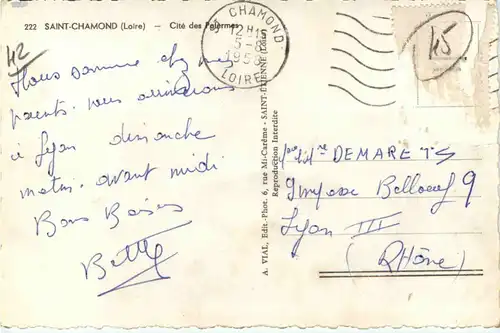 222 SAINT-CHAMOND (Loire) — Cité des Palermes
42
Nous sommes chez mes
parents. nous arriverons
à Lyon dimanche
matin. avant midi
Bons Baisers
Betty
A. VIAL, Edit.-Phot. 6, rue Mi-Carême - SAINT-ÉTIENNE (Loire)
Reproduction Interdite
ST CHAMOND
12H15
LOIRE
45
DEMARETS
Impasse Belloeuf 9
Lyon III
(Rhône)